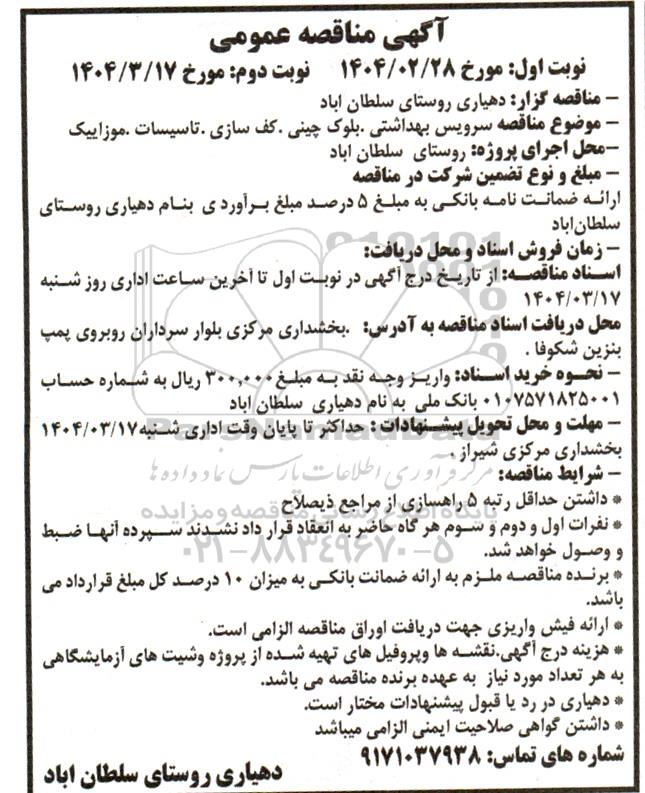 آگهی مناقصه عمومی
نوبت اول: مورخ ۱۴۰۴/۰۲/۲۸ نوبت دوم: مورخ ۱۴۰۴/۳/۱۷
– مناقصه گزار: دهیاری روستای سلطان اباد
– موضوع مناقصه سرویس بهداشتی .بلوک چینی .کف سازی .تاسیسات .موزاییک
–محل اجرای پروژه: روستای سلطان اباد
– مبلغ و نوع تضمین شرکت در مناقصه
ارائه ضمانت نامه بانکی به مبلغ ۵ درصد مبلغ برآورد ی بنام دهیاری روستای
سلطان‌اباد
– زمان فروش اسناد و محل دریافت:
اسناد مناقصه: از تاریخ درج آگهی در نوبت اول تا آخرین ساعت اداری روز شنبه
۱۴۰۴/۰۳/۱۷
محل دریافت اسناد مناقصه به آدرس: .بخشداری مرکزی بلوار سرداران روبروی پمپ
بنزین شکوفا .
– نحوه خرید اسناد: واریز وجه نقد به مبلغ ۳۰۰,۰۰۰ ریال به شماره حساب
۰۱۰۷۵۷۱۸۲۵۰۰۱ بانک ملی به نام دهیاری سلطان اباد
– مهلت و محل تحویل پیشنهادات : حداکثر تا پایان وقت اداری شنبه ۱۴۰۴/۰۳/۱۷
بخشداری مرکزی شیراز .
مرکز فرآوری اطلاعات پارس نماد داده ها
– شرایط مناقصه:
* داشتن حداقل رتبه ۵ راهسازی از مراجع ذیصلاح
* نفرات اول و دوم و سوم هر گاه حاضر به انعقاد قرار داد نشدند سپرده آنها ضبط
و وصول خواهد شد.
۰۲۱-۸۸۳۴۹۶۷۰-۵
* برنده مناقصه ملزم به ارائه ضمانت بانکی به میزان ۱۰ درصد کل مبلغ قرارداد می
باشد.
* ارائه فیش واریزی جهت دریافت اوراق مناقصه الزامی است.
* هزینه درج آگهی.نقشه ها وپروفیل های تهیه شده از پروژه وشیت های آزمایشگاهی
به هر تعداد مورد نیاز به عهده برنده مناقصه می باشد.
* دهیاری در رد یا قبول پیشنهادات مختار است.
* داشتن گواهی صلاحیت ایمنی الزامی میباشد
شماره های تماس: ۹۱۷۱۰۳۷۹۳۸
دهیاری روستای سلطان اباد